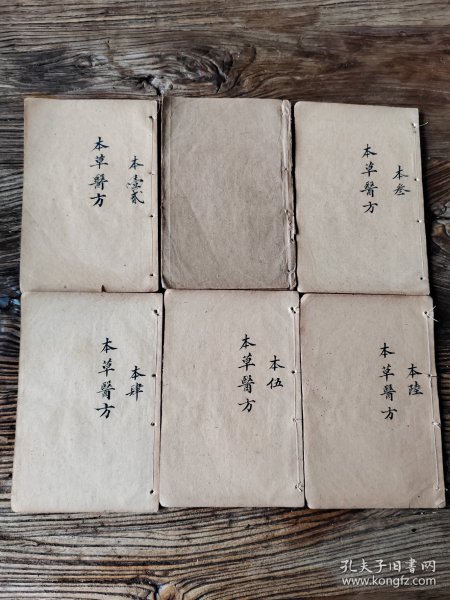 本壹貳
本草醫方
本叁
本草醫方
本肆
本草醫方
本伍
本草醫方
本陸
本草醫方
孔夫子旧书网
www.kongfz.com